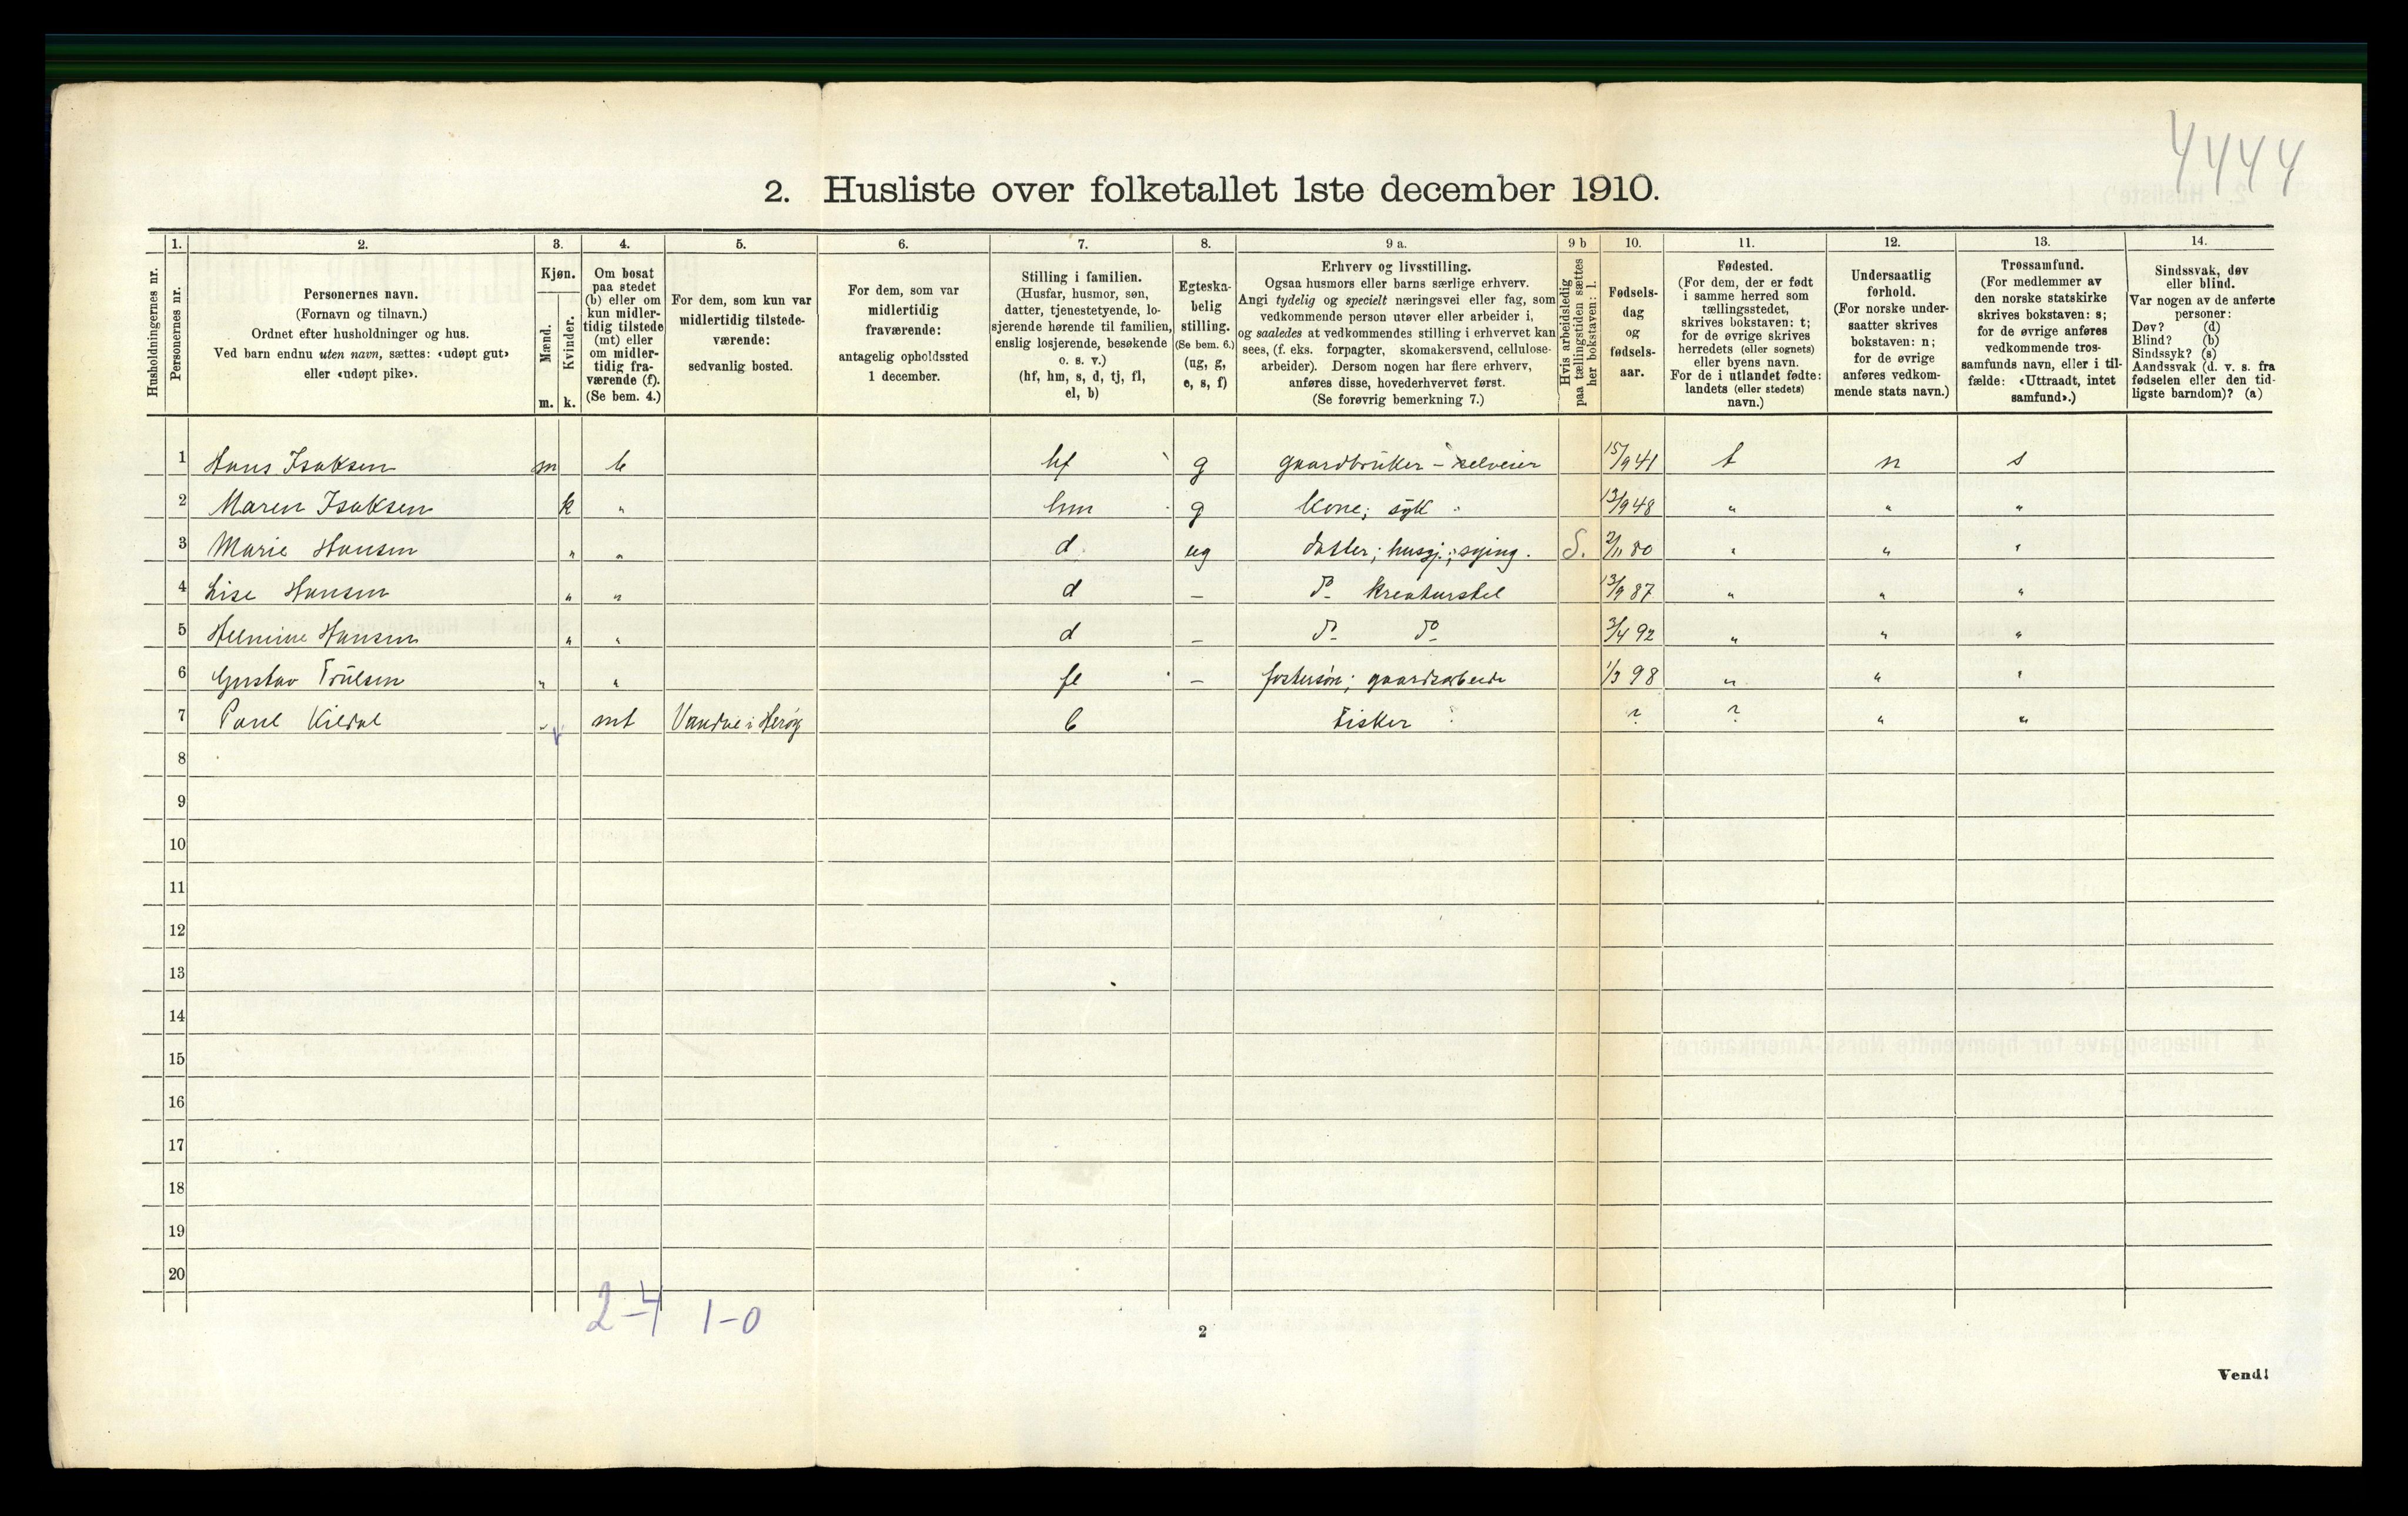 4444
2. Husliste over folketallet 1ste december 1910.
1. 2. 3. 4. 5. 6. 7. 8. 9 a. 9 b 10. 11. 12. 13. 14.
Husholdningernes nr.
Personernes nr.
Personernes navn.
(Fornavn og tilnavn.)
Ordnet efter husholdninger og hus.
Ved barn endnu uten navn, sættes: «udøpt gut»
eller «udøpt pike».
Kjøn.
Mænd.
Kvinder.
m. k.
Om bosat
paa stedet
(b) eller om
kun midler-
tidig tilstede
(mt) eller
om midler-
tidig fra-
værende (f).
(Se bem. 4.)
For dem, som kun var
midlertidig tilstede-
værende:
sedvanlig bosted.
For dem, som var
midlertidig
fraværende:
antagelig opholdssted
1 december.
Stilling i familien.
(Husfar, husmor, søn,
datter, tjenestetyende, lo-
sjerende hørende til familien,
enslig losjerende, besøkende
o. s. v.)
(hf, hm, s, d, tj, fl,
el, b)
Egteska-
belig
stilling.
(Se bem. 6.)
(ug, g,
e, s, f)
Erhverv og livsstilling.
Ogsaa husmors eller barns særlige erhverv.
Angi tydelig og specielt næringsvei eller fag, som
vedkommende person utøver eller arbeider i,
og saaledes at vedkommendes stilling i erhvervet kan
sees, (f. eks. forpagter, skomakersvend, cellulose-
arbeider). Dersom nogen har flere erhverv,
anføres disse, hovederhvervet først.
(Se forøvrig bemerkning 7.)
Hvis arbeidsledig
paa tællingstiden sættes
her bokstaven: l.
Fødsels-
dag
og
fødsels-
aar.
Fødested.
(For dem, der er født
i samme herred som
tællingsstedet,
skrives bokstaven: t;
for de øvrige skrives
herredets (eller sognets)
eller byens navn.
For de i utlandet fødte:
landets (eller stedets)
navn.)
Undersaatlig
forhold.
(For norske under-
saatter skrives
bokstaven: n;
for de øvrige
anføres vedkom-
mende stats navn.)
Trossamfund.
(For medlemmer av
den norske statskirke
skrives bokstaven: s;
for de øvrige anføres
vedkommende tros-
samfunds navn, eller i til-
fælde: «Uttraadt, intet
samfund».)
Sindssvak, døv
eller blind.
Var nogen av de anførte
personer:
Døv? (d)
Blind? (b)
Sindssyk? (s)
Aandssvak (d. v. s. fra
fødselen eller den tid-
ligste barndom)? (a)
1 Hans Isaksen m b hf g gaardbruker - selveier 15/9 41 t n s
2 Maren Isaksen k " hm g Kone; syk 13/9 48 " " "
3 Marie Hansen " " d ug datter; husgj.; sying. S. 2/11 80 " " "
4 Lise Hansen " " d - Do kreaturstel 13/9 87 " " "
5 Helmine Hansen " " d - Do Do 3/4 92 " " "
6 Gustav Trulsen " " fl - fostersøn; gaardsarbeide 1/3 98 " " "
7 Paul Kildal " mt Vandve i Herøy b Fisker ? ? " "
8
9
10
11
12
13
14
15
16
17
18
19
20
2-4 1-0
2
Vend!